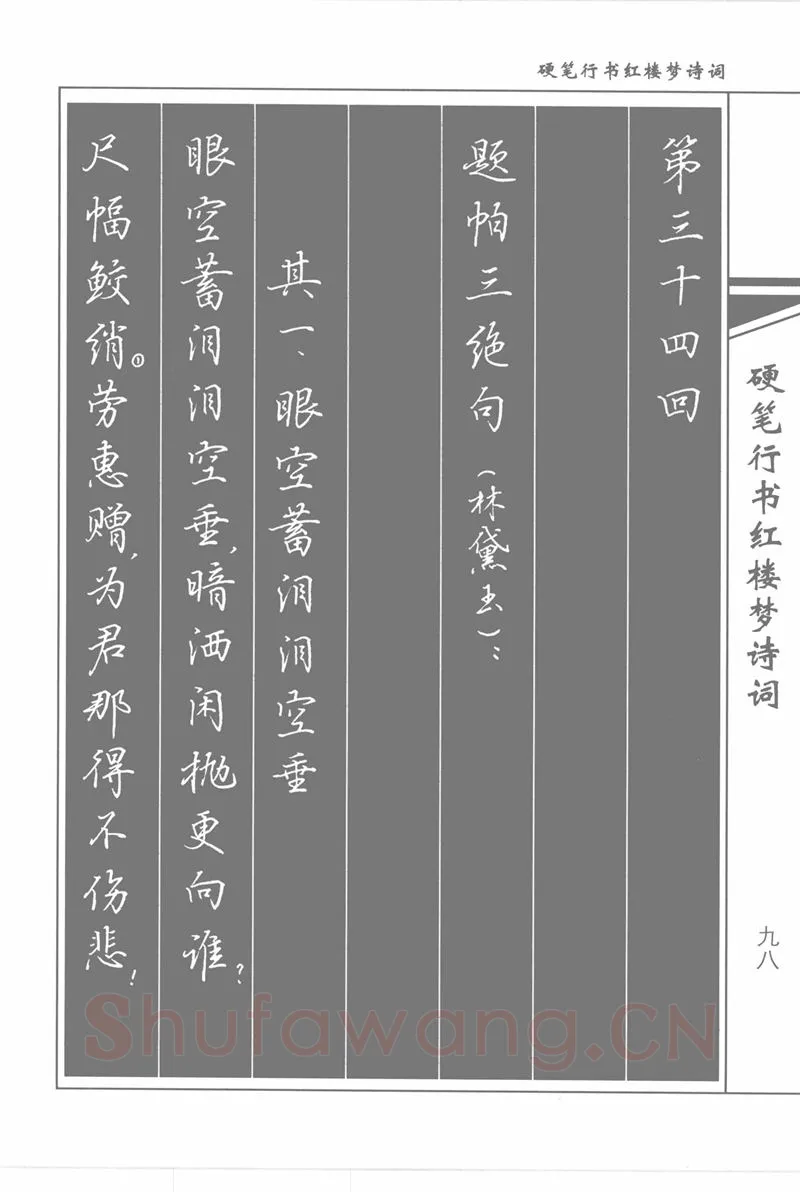 硬笔行书红楼梦诗词
第三十四回
题帕三绝句（林黛玉）：
其一、眼空蓄泪泪空垂
眼空蓄泪泪空垂，暗洒闲抛更向谁？
尺幅鲛绡①劳惠赠，为君那得不伤悲！
硬笔行书红楼梦诗词
九八
Shufawang.CN